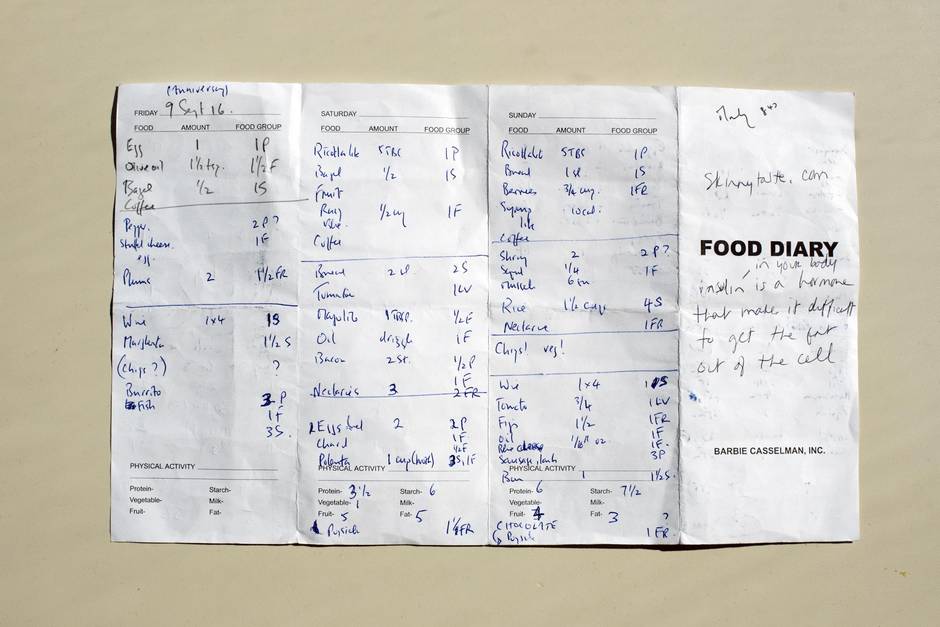 (Anniversary)
FRIDAY 9 Sept 16.
FOOD AMOUNT FOOD GROUP
Egg 1 1P
Olive oil 1½ tsp. 1½ F
Bagel ½ 1S
Coffee
2P?
Stuffed cheese. 1F
egg
Plums 2 1½ FR
Wine 1x4 1S
Margherita 1½ S
(Chips?) ?
Burrito 3 P
Fish 1F
3S.
PHYSICAL ACTIVITY
Protein- Starch-
Vegetable- Milk-
Fruit- Fat-
SATURDAY
FOOD AMOUNT FOOD GROUP
5TBS 1P
Bagel ½ 1S
Fruit
½ 1F
Coffee
Bread 2 2S
Tomato 1LV
1 TBSP. ½F
Oil drizzle 1F
Bacon 2 St. ½P
1F
Nectarines 3 2FR
Eggs 2 2P
Chard 1F
½F
Polenta 1 cup 3S, 1F
PHYSICAL ACTIVITY
Protein- 3½ Starch- 6
Vegetable- 1 Milk-
Fruit- 5 Fat- 5
FR
SUNDAY
FOOD AMOUNT FOOD GROUP
5TBS 1P
Bread 1 sl. 1S
Berries 3/4 1FR
10 cal.
Coffee
Shrimp 2 2P?
Squid 1/4 1F
Mussel 6
Rice 1½ cups 4S
Nectarine 1FR
Chips! veg!
Wine 1x4 1S
Tomato 3/4 1LV
Figs 1½ 1FR
Oil 1F
Blue cheese oz 1F.
Sausage 3P
Bun 1 1½S.
PHYSICAL ACTIVITY
Protein- 6 Starch- 7½
Vegetable- Milk-
Fruit- 4 Fat- 3 ?
CHOCOLATE
1FR.
Skinnytaste.com
FOOD DIARY
in your body
insulin is a hormone
that make it difficult
to get the fat
out of the cell
BARBIE CASSELMAN, INC.